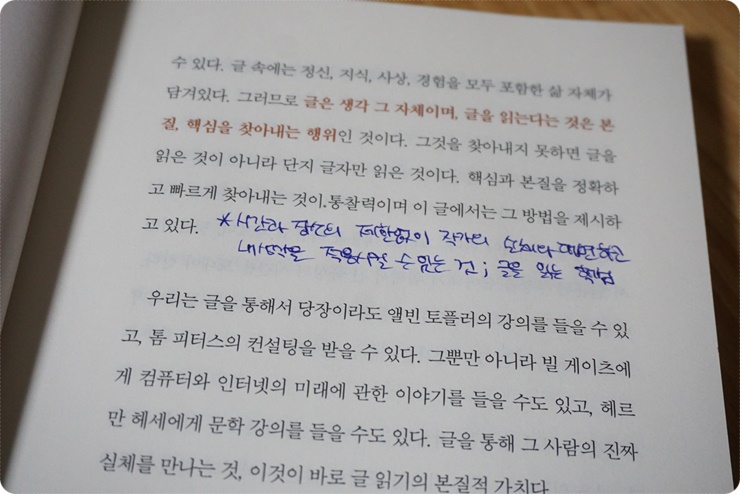 수 있다. 글 속에는 정신, 지식, 사상, 경험을 모두 포함한 삶 자체가
담겨있다. 그러므로 글은 생각 그 자체이며, 글을 읽는다는 것은 본
질, 핵심을 찾아내는 행위인 것이다. 그것을 찾아내지 못하면 글을
읽은 것이 아니라 단지 글자만 읽은 것이다. 핵심과 본질을 정확하
고 빠르게 찾아내는 것이 통찰력이며 이 글에서는 그 방법을 제시하
고 있다. *시간과 장소의 제한없이 작가의 대면하고
내 생각을 적용시킬 수 있는 것; 글을 읽는 핵심
우리는 글을 통해서 당장이라도 앨빈 토플러의 강의를 들을 수 있
고, 톰 피터스의 컨설팅을 받을 수 있다. 그뿐만 아니라 빌 게이츠에
게 컴퓨터와 인터넷의 미래에 관한 이야기를 들을 수도 있고, 헤르
만 헤세에게 문학 강의를 들을 수도 있다. 글을 통해 그 사람의 진짜
실체를 만나는 것, 이것이 바로 글 읽기의 본질적 가치다.